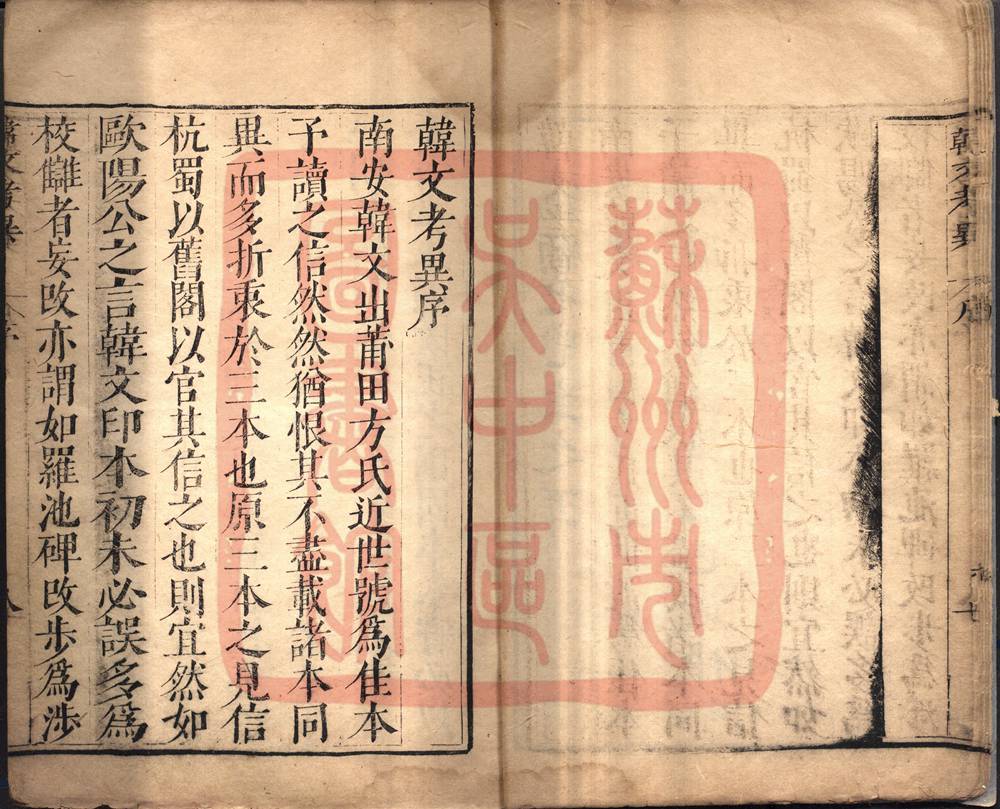 韓文考異序
南安韓文出莆田方氏近世號爲佳本
予讀之信然然猶恨其不盡載諸本同
異而多折衷於三本也原三本之見信
杭蜀以舊閣以官其信之也則宜然如
歐陽公之言韓文印本初未必誤多爲
校讎者妄改亦謂如羅池碑改步爲涉
韓文考異
蘇州市
吳中區
圖書館